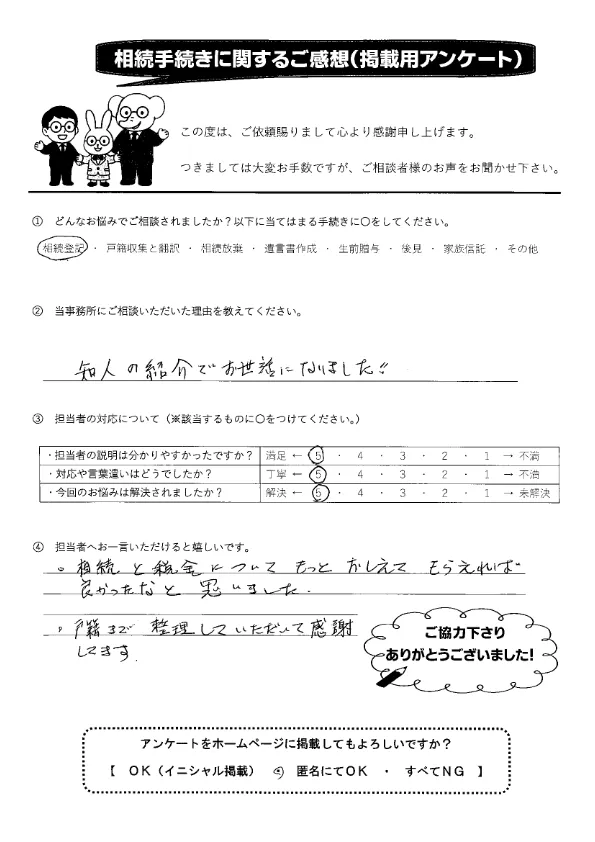 相続手続きに関するご感想(掲載用アンケート)
この度は、ご依頼賜りまして心より感謝申し上げます。
つきましては大変お手数ですが、ご相談者様のお声をお聞かせ下さい。
① どんなお悩みでご相談されましたか?以下に当てはまる手続きに○をしてください。
相続登記 ・ 戸籍収集と翻訳 ・ 相続放棄 ・ 遺言書作成 ・ 生前贈与 ・ 後見 ・ 家族信託 ・ その他
② 当事務所にご相談いただいた理由を教えてください。
知人の紹介でお世話になりました!!
③ 担当者の対応について(※該当するものに○をつけてください。)
・担当者の説明は分かりやすかったですか? 満足 ← 5 ・ 4 ・ 3 ・ 2 ・ 1 → 不満
・対応や言葉遣いはどうでしたか? 丁寧 ← 5 ・ 4 ・ 3 ・ 2 ・ 1 → 不満
・今回のお悩みは解決されましたか? 解決 ← 5 ・ 4 ・ 3 ・ 2 ・ 1 → 未解決
④ 担当者へお一言いただけると嬉しいです。
。相続と税金についてもっとおしえてもらえれば
良かったなと思いました.
。戸籍まで整理していただいて感謝
してます.
ご協力下さり
ありがとうございました!
アンケートをホームページに掲載してもよろしいですか?
【 OK(イニシャル掲載) ・ 匿名にてOK ・ すべてNG 】